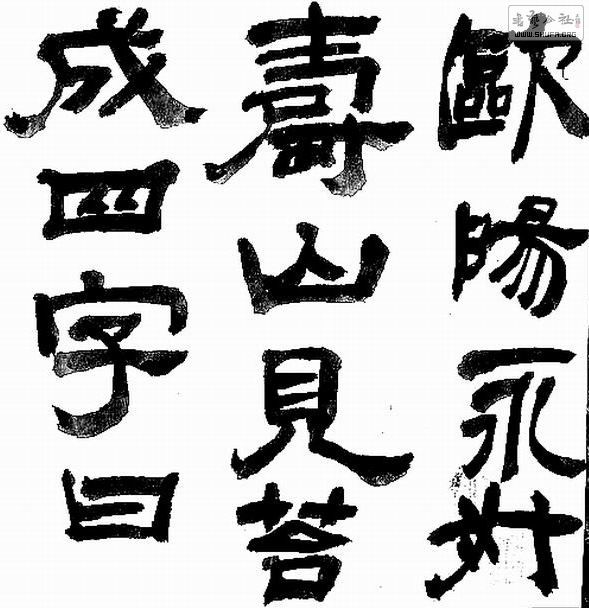 歐陽永叔
壽山見荅
成四字曰
书艺公社
WWW.SHUFA.ORG